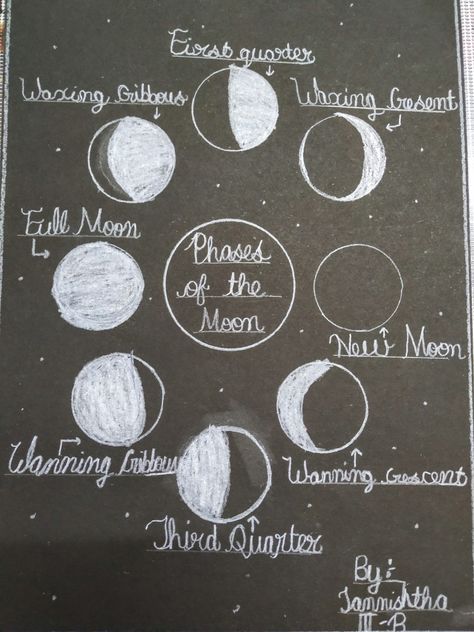 First quarter
Waxing Gibbous
Waxing Cresent
Full Moon
Phases
of the
Moon
New Moon
Wanning Gibbous
Wanning Crescent
Third Quarter
By :-
Tannishtha
III - B